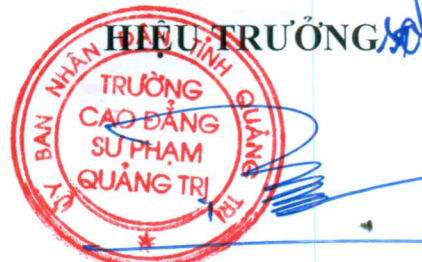 HIỆU TRƯỞNG
ỦY BAN NHÂN DÂN TỈNH QUẢNG TRỊ
TRƯỜNG
CAO ĐẲNG
SƯ PHẠM
QUẢNG TRỊ